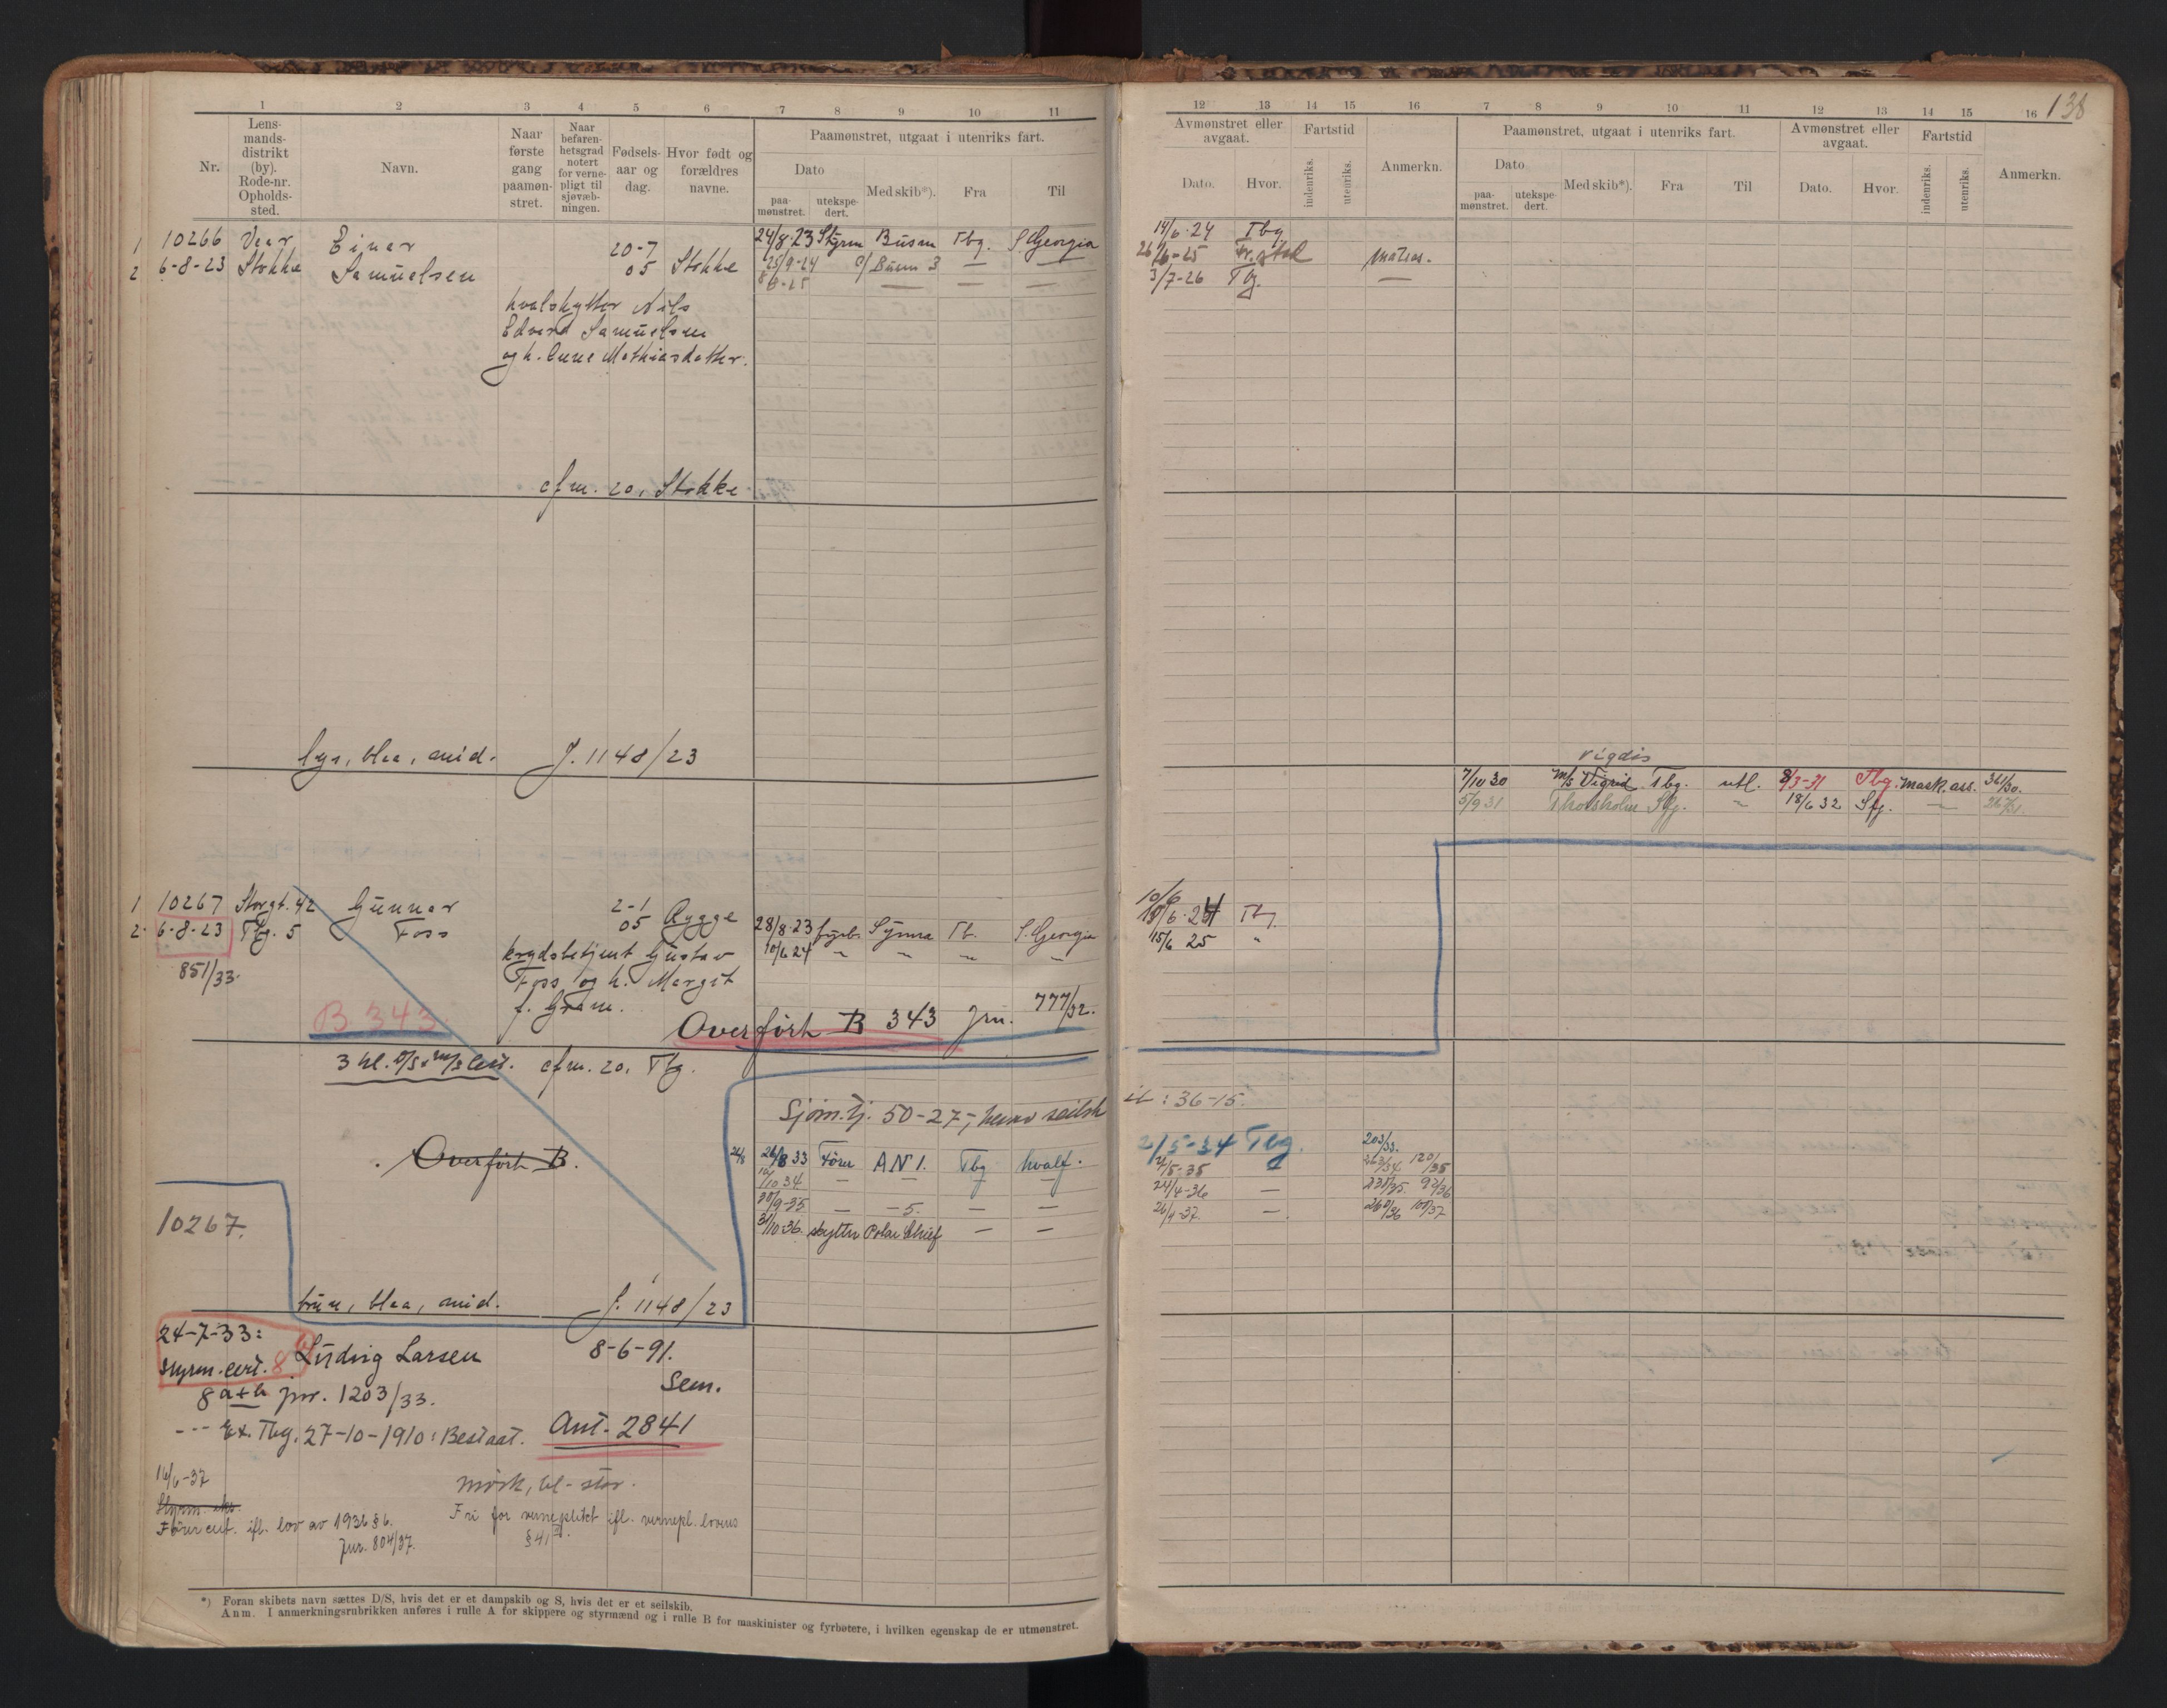 1 2 3 4 5 6 7 8 9 10 11
Nr.
Lens-
mands-
distrikt
(by).
Rode-nr.
Opholds-
sted.
Navn.
Naar
første
gang
paamøn-
stret.
Naar
befaren-
hetsgrad
notert
for verne-
pligt til
sjøvæb-
ningen.
Fødsels-
aar og
dag.
Hvor født og
forældres
navne.
Paamønstret, utgaat i utenriks fart.
Dato
paa-
mønstret.
utekspe-
dert.
Med skib*).
Fra
Til
1 10266 Vear Einar 20-7 24/8.23 Styrm Busen Tbg. S. Georgia
2 6-8-23 Stokke Samuelsen 05 Stokke 25/9-24 Busen 3 — —
8/8-25 — — —
hvalskytter Nils
Edvard Samuelsen
og h. Mathiasdatter.
cfm. 20. Stokke
lys, blaa, mid. J. 1148/23
1 10267 Storgt. 42 Gunnar 2-1
2. 6-8-23 Tbg. 5 Foss 05 Rygge 28/8.23 fyrb. Tb. S. Georgia
krydsbetjent Gustav 10/6 24 " " " "
851/33. Foss og h. Margit
f. Gram.
B 343 Overført B 343 jrn. 777/32.
cfm. 20. Tbg.
Sjøm.tj. 50-27-,
Overført B. 26/8 26/8 33 Fører AN 1. Tbg hvalf.
1/10 34 — — — —
30/9-35 — — 5. — —
10267. 31/10-36. skytter Polar Chief — —
brun, blaa, mid. J. 1148/23
24-7-33:
Styrm. cert. 8 Ludvig Larsen 8-6-91.
8 a+b jnr. 1203/33. Sem.
--- Ex. Tbg. 27-10-1910: Bestaat. Ant. 2841
16/6-37 mørk, bl- stor.
Førercert. ifl. lov av 1936 § 6. Fri for verneplikt ifl. vernepl. lovens
jnr. 804/37. § 41
*) Foran skibets navn sættes D/S, hvis det er et dampskib og S, hvis det er et seilskib.
Anm. I anmerkningsrubrikken anføres i rulle A for skippere og styrmænd og i rulle B for maskinister og fyrbøtere, i hvilken egenskap de er utmønstret.
12 13 14 15 16 7 8 9 10 11 12 13 14 15 16 138
Avmønstret eller
avgaat.
Dato.
Hvor.
Fartstid
indenriks.
utenriks.
Anmerkn.
Paamønstret, utgaat i utenriks fart.
Dato
paa-
mønstret.
utekspe-
dert.
Med skib*).
Fra
Til
Avmønstret eller
avgaat.
Dato.
Hvor.
Fartstid
indenriks.
utenriks.
Anmerkn.
14/6.24 Tbg
26/6-25 Fr.stad matros.
3/7-26 Tbg. —
Vigdis
7/10 30 M/S Vigrid Tbg. utl. 8/3-31 Tbg. mask. ass. 361/30.
5/9 31 Thorsholm Sfj. " 18/6 32 Sfj. —
10/6
10/6.24 Tbg
15/6 25 "
: 36-15.
2/5-34 Tbg. 203/33.
2/5-35 263/34 120/35
24/4-36 — 235/35. 92/36
26/4-37. — 260/36 100/37